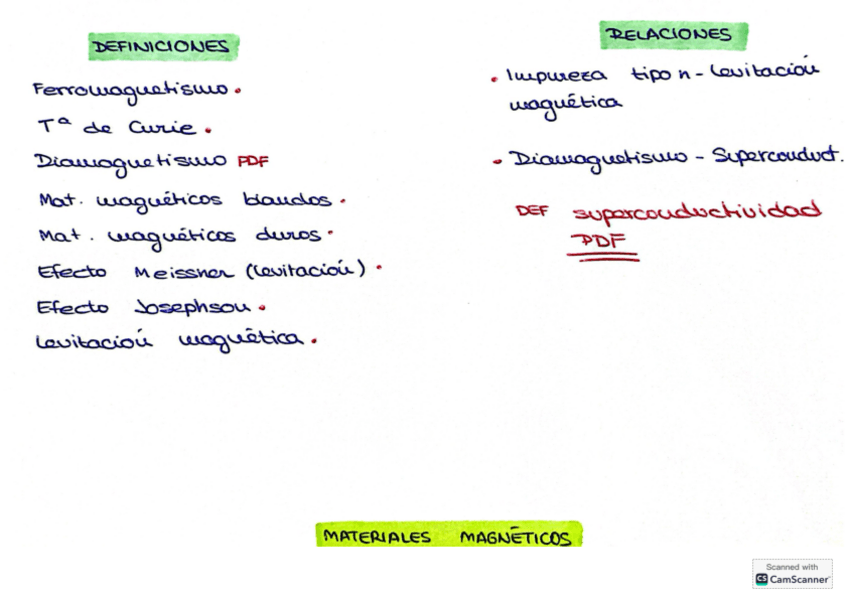 DEFINICIONES
Ferromagnetismo.
Tª de Curie.
Diamagnetismo PDF
Mat. magnéticos blandos.
Mat. magnéticos duros.
Efecto Meissner (levitación).
Efecto Josephson.
Levitación magnética.
RELACIONES
• Impureza tipo n - Levitación
magnética
• Diamagnetismo - Superconduct.
DEF superconductividad
PDF
MATERIALES MAGNÉTICOS
Scanned with
CS CamScanner